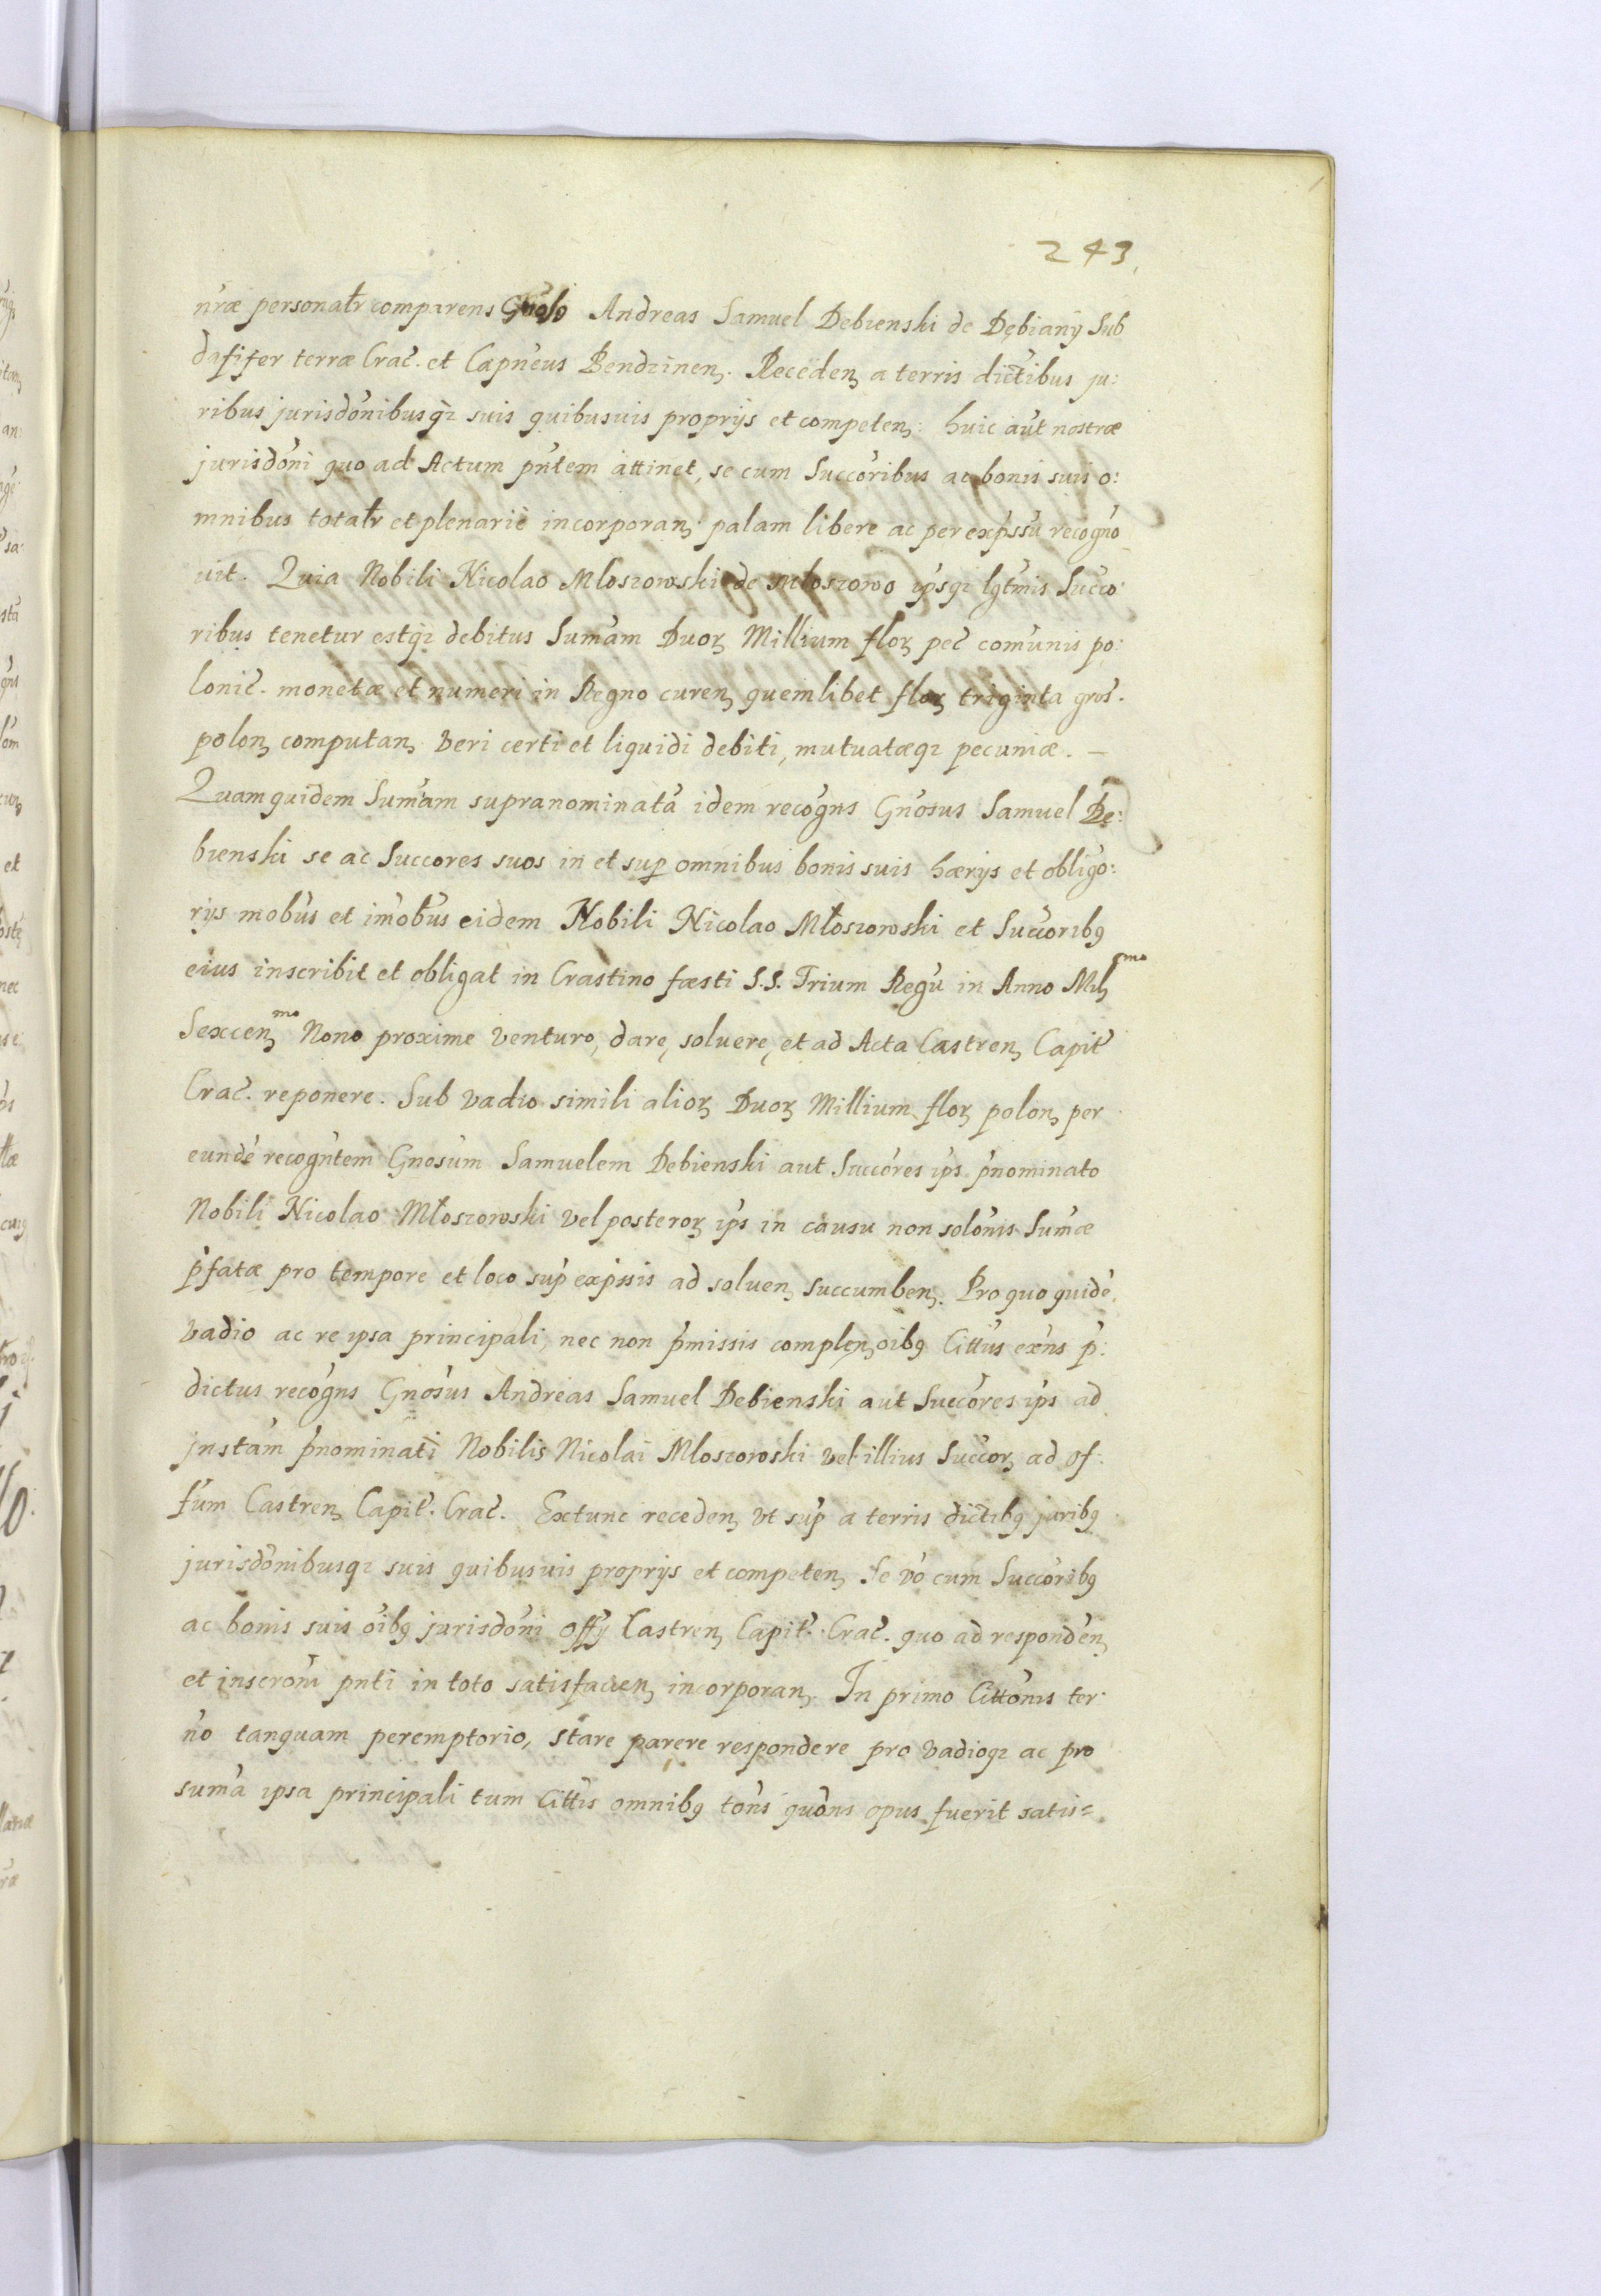 243.
nræ personatr comparens Gnoso Andreas Samuel Debienski de Dębiany Sub
dapifer terræ Crac. et Capneus Bendzinen. Receden a terris dictibus ju:
ribus jurisdonibusq suis quibusuis proprys et competen: huic aut nostræ
jurisdoni quo ad Actum pntem attinet, se cum Succoribus ac bonis suis o:
mnibus totatr et plenarie incorporan palam libere ac per expssu recogno
uit. Quia Nobili Nicolao Mloszowski de Mloszowo ipsq lgtmis Succo:
ribus tenetur estq debitus Sumam Duor Millium flor pec comunis po:
lonic. monetæ et numeri in Regno curen quemlibet flor triginta gros.
polon computan veri certi et liquidi debiti, mutuatæq pecuniæ. —
Quam quidem Sumam supranominata idem recogns Gnosus Samuel Dę:
bienski se ac Succores suos in et sup omnibus bonis suis hærys et obligo:
rys mobus et imobus eidem Nobili Nicolao Młoszowski et Succoribq
eius inscribit et obligat in Crastino fæsti S.S. Trium Regu in Anno Mil mo
Sexcen mo Nono proxime venturo, dare, soluere, et ad Acta Castren Capit
Crac. reponere. Sub vadio simili alior Duor Millium flor polon per
eunde recogntem Gnosum Samuelem Debienski aut Succores ips pnominato
Nobili Nicolao Młoszowski vel posteror ips in causu non solonis Sumæ
pfatæ pro tempore et loco sup expssis ad soluen succumben. Pro quo quide
vadio ac re ipsa principali, nec non pmissis complen oibq Cittus exns p:
dictus recogns Gnosus Andreas Samuel Debienski aut Succores ips ad
jnstam pnominati Nobilis Nicolai Mloszowski vel illius Succor ad of:
fum Castren Capit. Crac. Extunc receden vt sup a terris dictibq juribq
jurisdonibusq suis quibusuis proprys et competen Se vo cum Succoribq
ac bonis suis oibq jurisdoni offy Castren Capit. Crac. quo ad responden
et inscroni pnti in toto satisfacien incorporan. In primo Cittonis ter:
no tanquam peremptorio, stare parere respondere pro vadioq ac pro
suma ipsa principali tum Cittis omnibq tons quons opus fuerit satis=